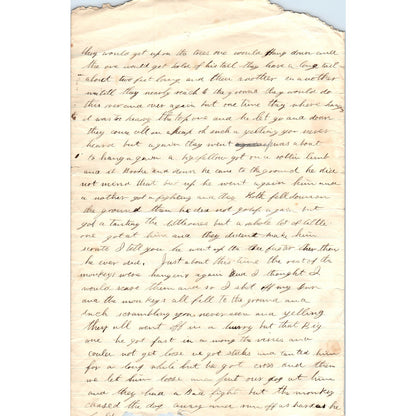 they would get upon the tree one would hang down until
the one would get holt of his tail they have a long tail
about two feet long and then another an another
untill they nearly reach to the ground they would do
this over and over again but one time they where hang
it was to heavy the top one and he let go and down
they come all in a heap oh such a yelling you never
heard but again they went was about
to hang again a big fellow got on a rotten limb
and it Broke and down he came to the ground he did
not mind that but up he went again him and
a nother got a fighting and they Both fell down on
the ground then he did not go up again but
got a the little ones but a whole lot of little
one got at him and they did make him
scoute I tell you he went up the tree faster then
he ever did. Just about this time the rest of the
monkeys were hanging again and I thought I
would scare them and so I shot off my Gun
and the monkeys all fell to the ground and
such scrambling you never seen and yelling
they all went off in a hurry but that Big
one he got fast in among the vines and
could not get loose we got sticks and him
for a long while but he got cross and then
we let him loose and put our dog at him
and they had a Bad fight but the monkey
chased the dog away and run off as hard as he